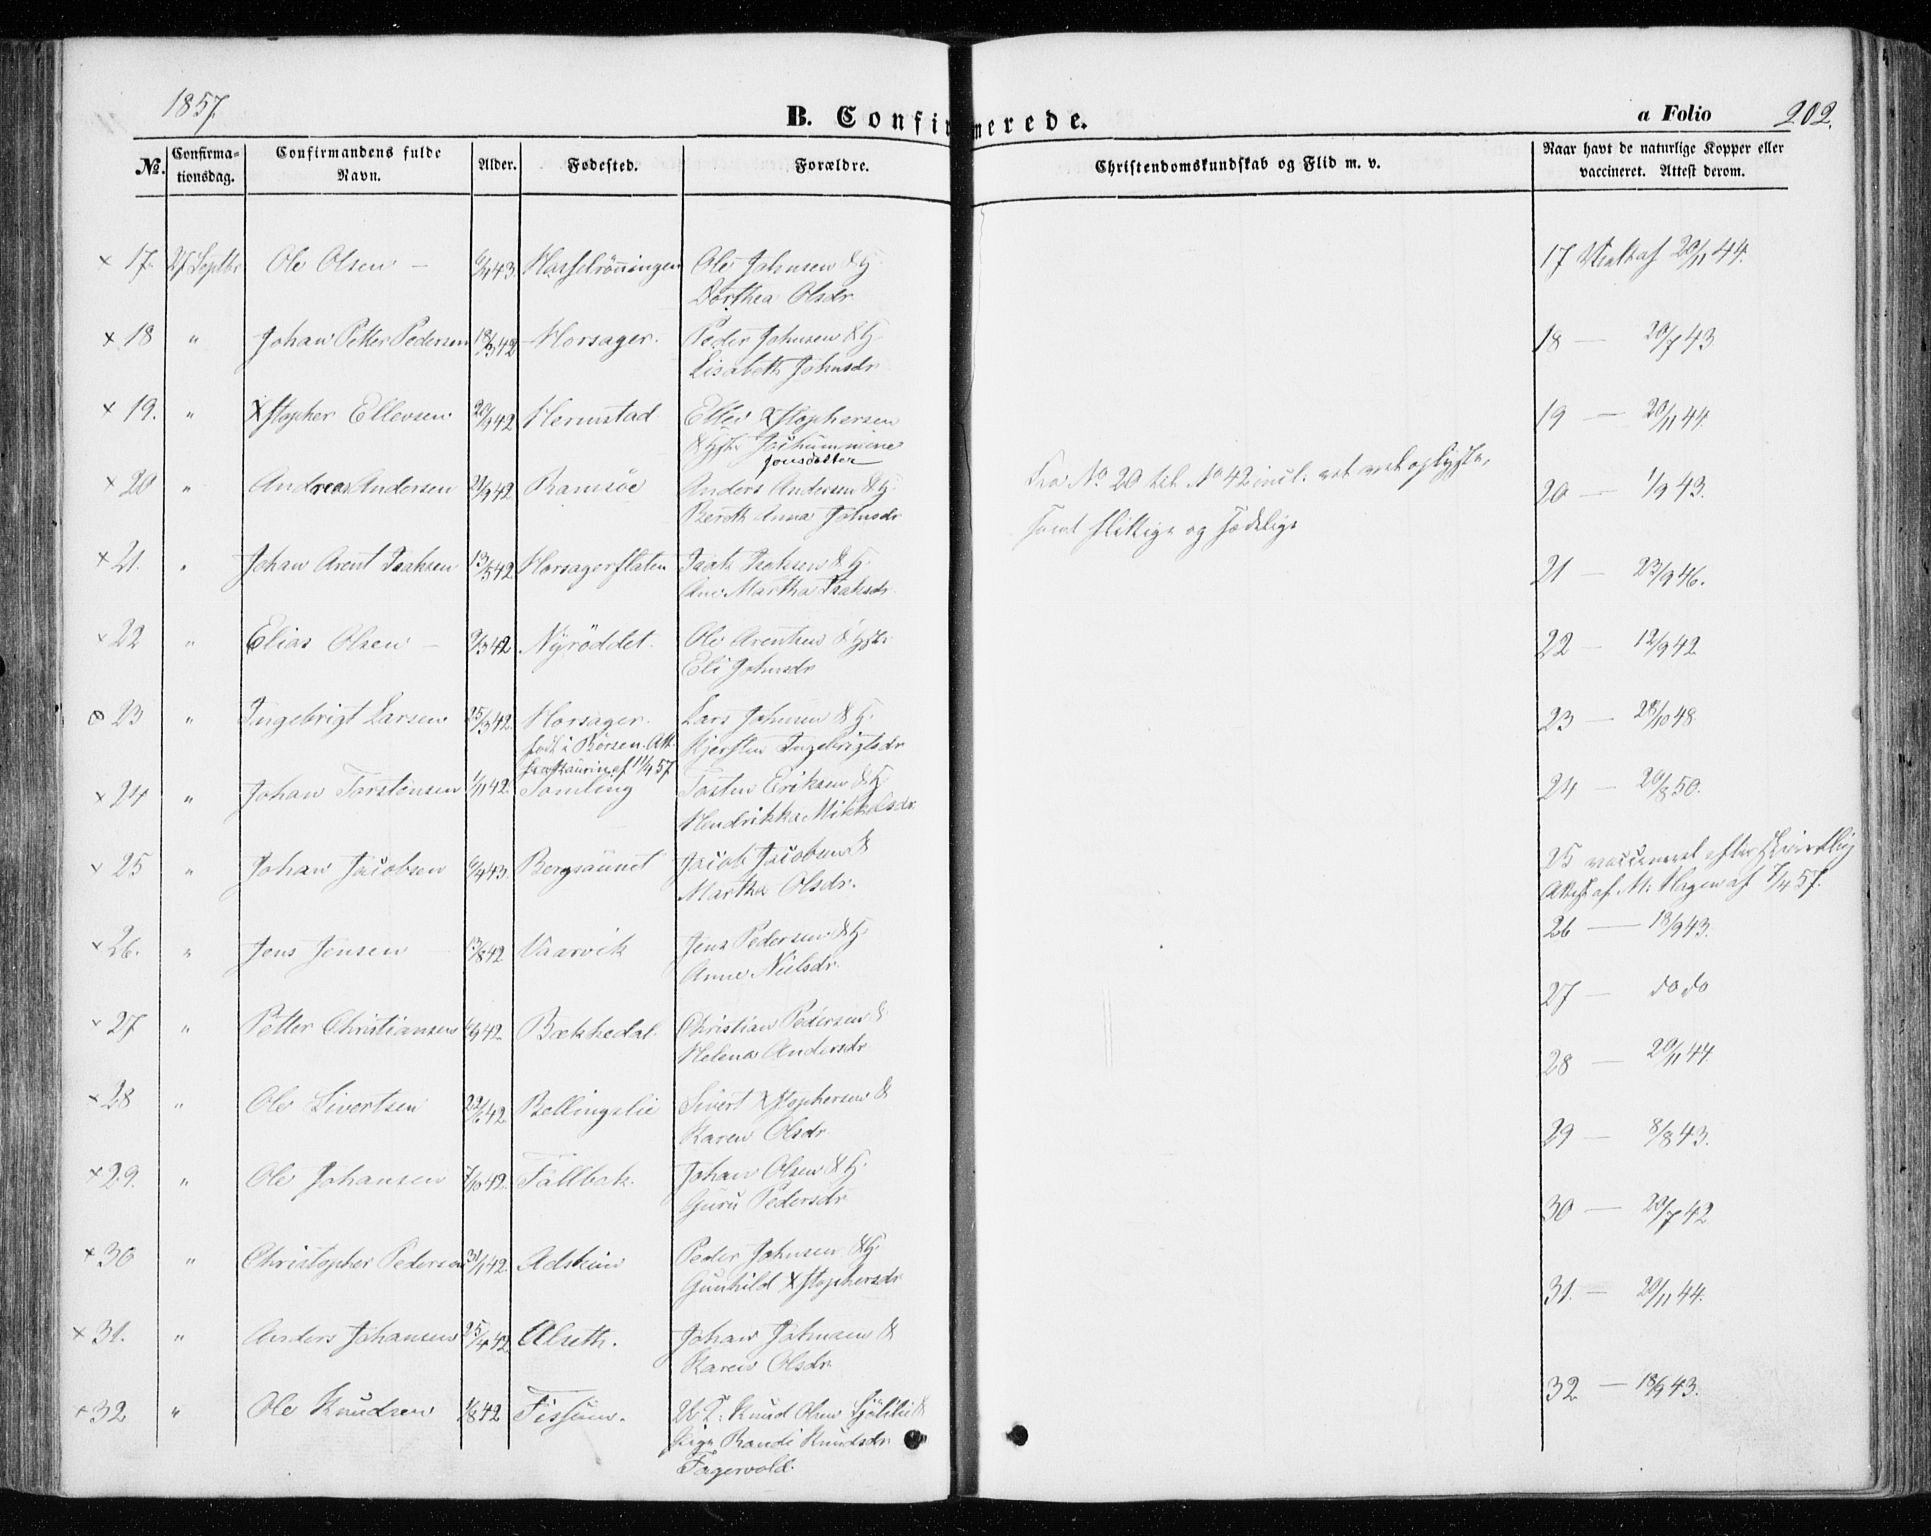 1857.
B. Confirmerede.
a Folio 202.
No. Confirmationsdag. Confirmandens fulde Navn. Alder. Fødested. Forældre. Christendomskundskab og Flid m. v. Naar havt de naturlige Kopper eller vaccineret. Attest derom.
× 17. 27 Septbr. Ole Olsen – 6/4 43. Hasselrönningen Ole Johnsen & H.
Dorthea Olsdr.
17 20/11 44.
× 18 " Johan Petter Pedersen 18/3 42 Horsager. Peder Johnsen & H.
Lisabeth Johnsdr.
18 — 20/7 43
× 19. " Xstopher Ellevsen 20/9 42 Hermstad Xstophersen
& Hstr.
Jonsdatter
19 — 20/11 44.
× 20 " Andreas Andersen 21/9 42 Ramsöe Anders Andersen & H.
Bereth Anna Johnsdr
Fra No 20 til No 42 incl.
flittige og sædelige
20 — 1/9 43.
× 21. " Johan Arent Isaksen 13/5 42 Horsagerflaten Isak Isaksen & H.
Ane Martha Isaksdr.
21 — 23/9 46.
× 22 " Elias Olsen – 9/3 42 Nyröddet. Ole Arentsen & Hstr.
Eli Johnsdr
22 — 12/9 42
23 " Ingebrigt Larsen 25/3 42 Horsager. Lars Johnsen & H.
født i Börsen. Att.
Kjersten Ingebrigtsdr
23 — 28/10 48.
× 24 " Johan Torstensen 1/11 42 Tamling Tosten Eriksen & H.
Hendrikka Mikkelsdr.
24 — 20/8 50.
× 25 " Johan Jacobsen 6/4 43. Bergsaunet Jacob Jacobsen &
Martha Olsdr.
25 vaccineret efter
Attest af M. Hagen af 7/4 57.
× 26. " Jens Jensen 13/8 42 Vaarvik Jens Pedersen & H.
Anne Nielsdr.
26 — 18/9 43.
× 27 " Petter Christiansen 9 42. Bækkedal. Christian Pedersen &
Helena Andersdr
27 — do do
× 28 " Ole Sivertsen 22/6 42 Bellingslie Sivert Xstophersen &
Karen Olsdr
28 — 20/11 44
× 29. " Ole Johansen 7/10 42 Fallbak. Johan Olsen & H.
Guru Pedersdr.
29 — 8/8 43.
× 30 " Christopher Pedersen 31/1 42. Adskin Peder Johnsen & H.
Gunhild Xstophersdr
30 — 20/7 42
× 31. " Anders Johansen 25/4 42 Alseth. Johan Johnsen &
Karen Olsdr.
31. — 20/11 44.
× 32 " Ole Knudsen 1/8 42 Fissum. Knud Olsen &
Pige Randi Knudsdr
Fagervold.
32 — 18/9 43.